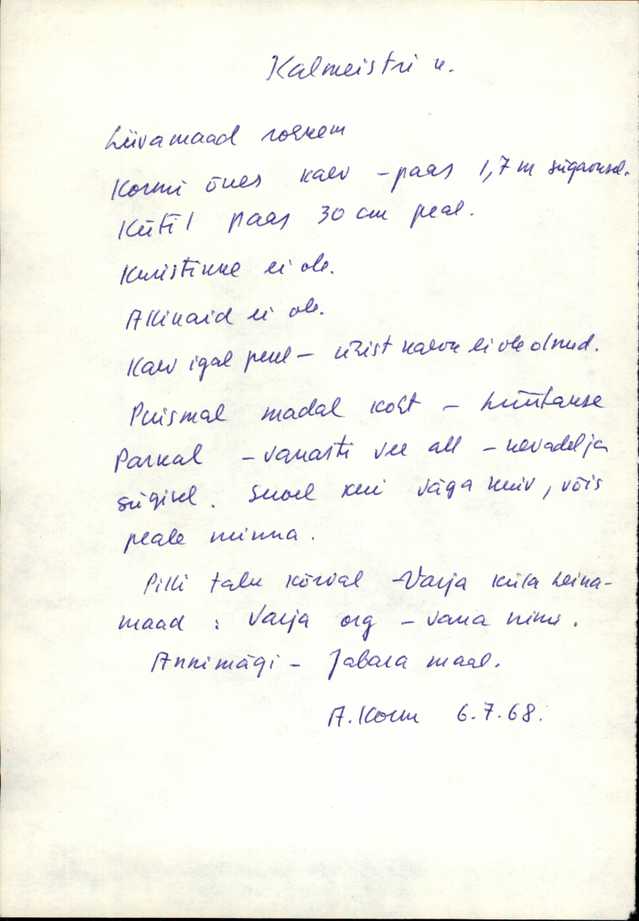 Kalmeistri k.
Liivamaad rohkem
Kormi õues kaev – paas 1,7 m sügavusel.
Kütil paas 30 cm peal.
Kuristikke ei ole.
Allikaid ei ole.
Kaev igal perel – ühist kaevu ei ole olnud.
Puismal madal koht – hüütakse
Parkal – vanasti vee all – kevadel ja
sügisel. Suvel kui väga kuiv, võis
peale minna.
Pilli talu kõrval – Varja küla heina-
maad : Varja org – vana nimi.
Annimägi – Jabara maal.
A. Korm 6.7.68.